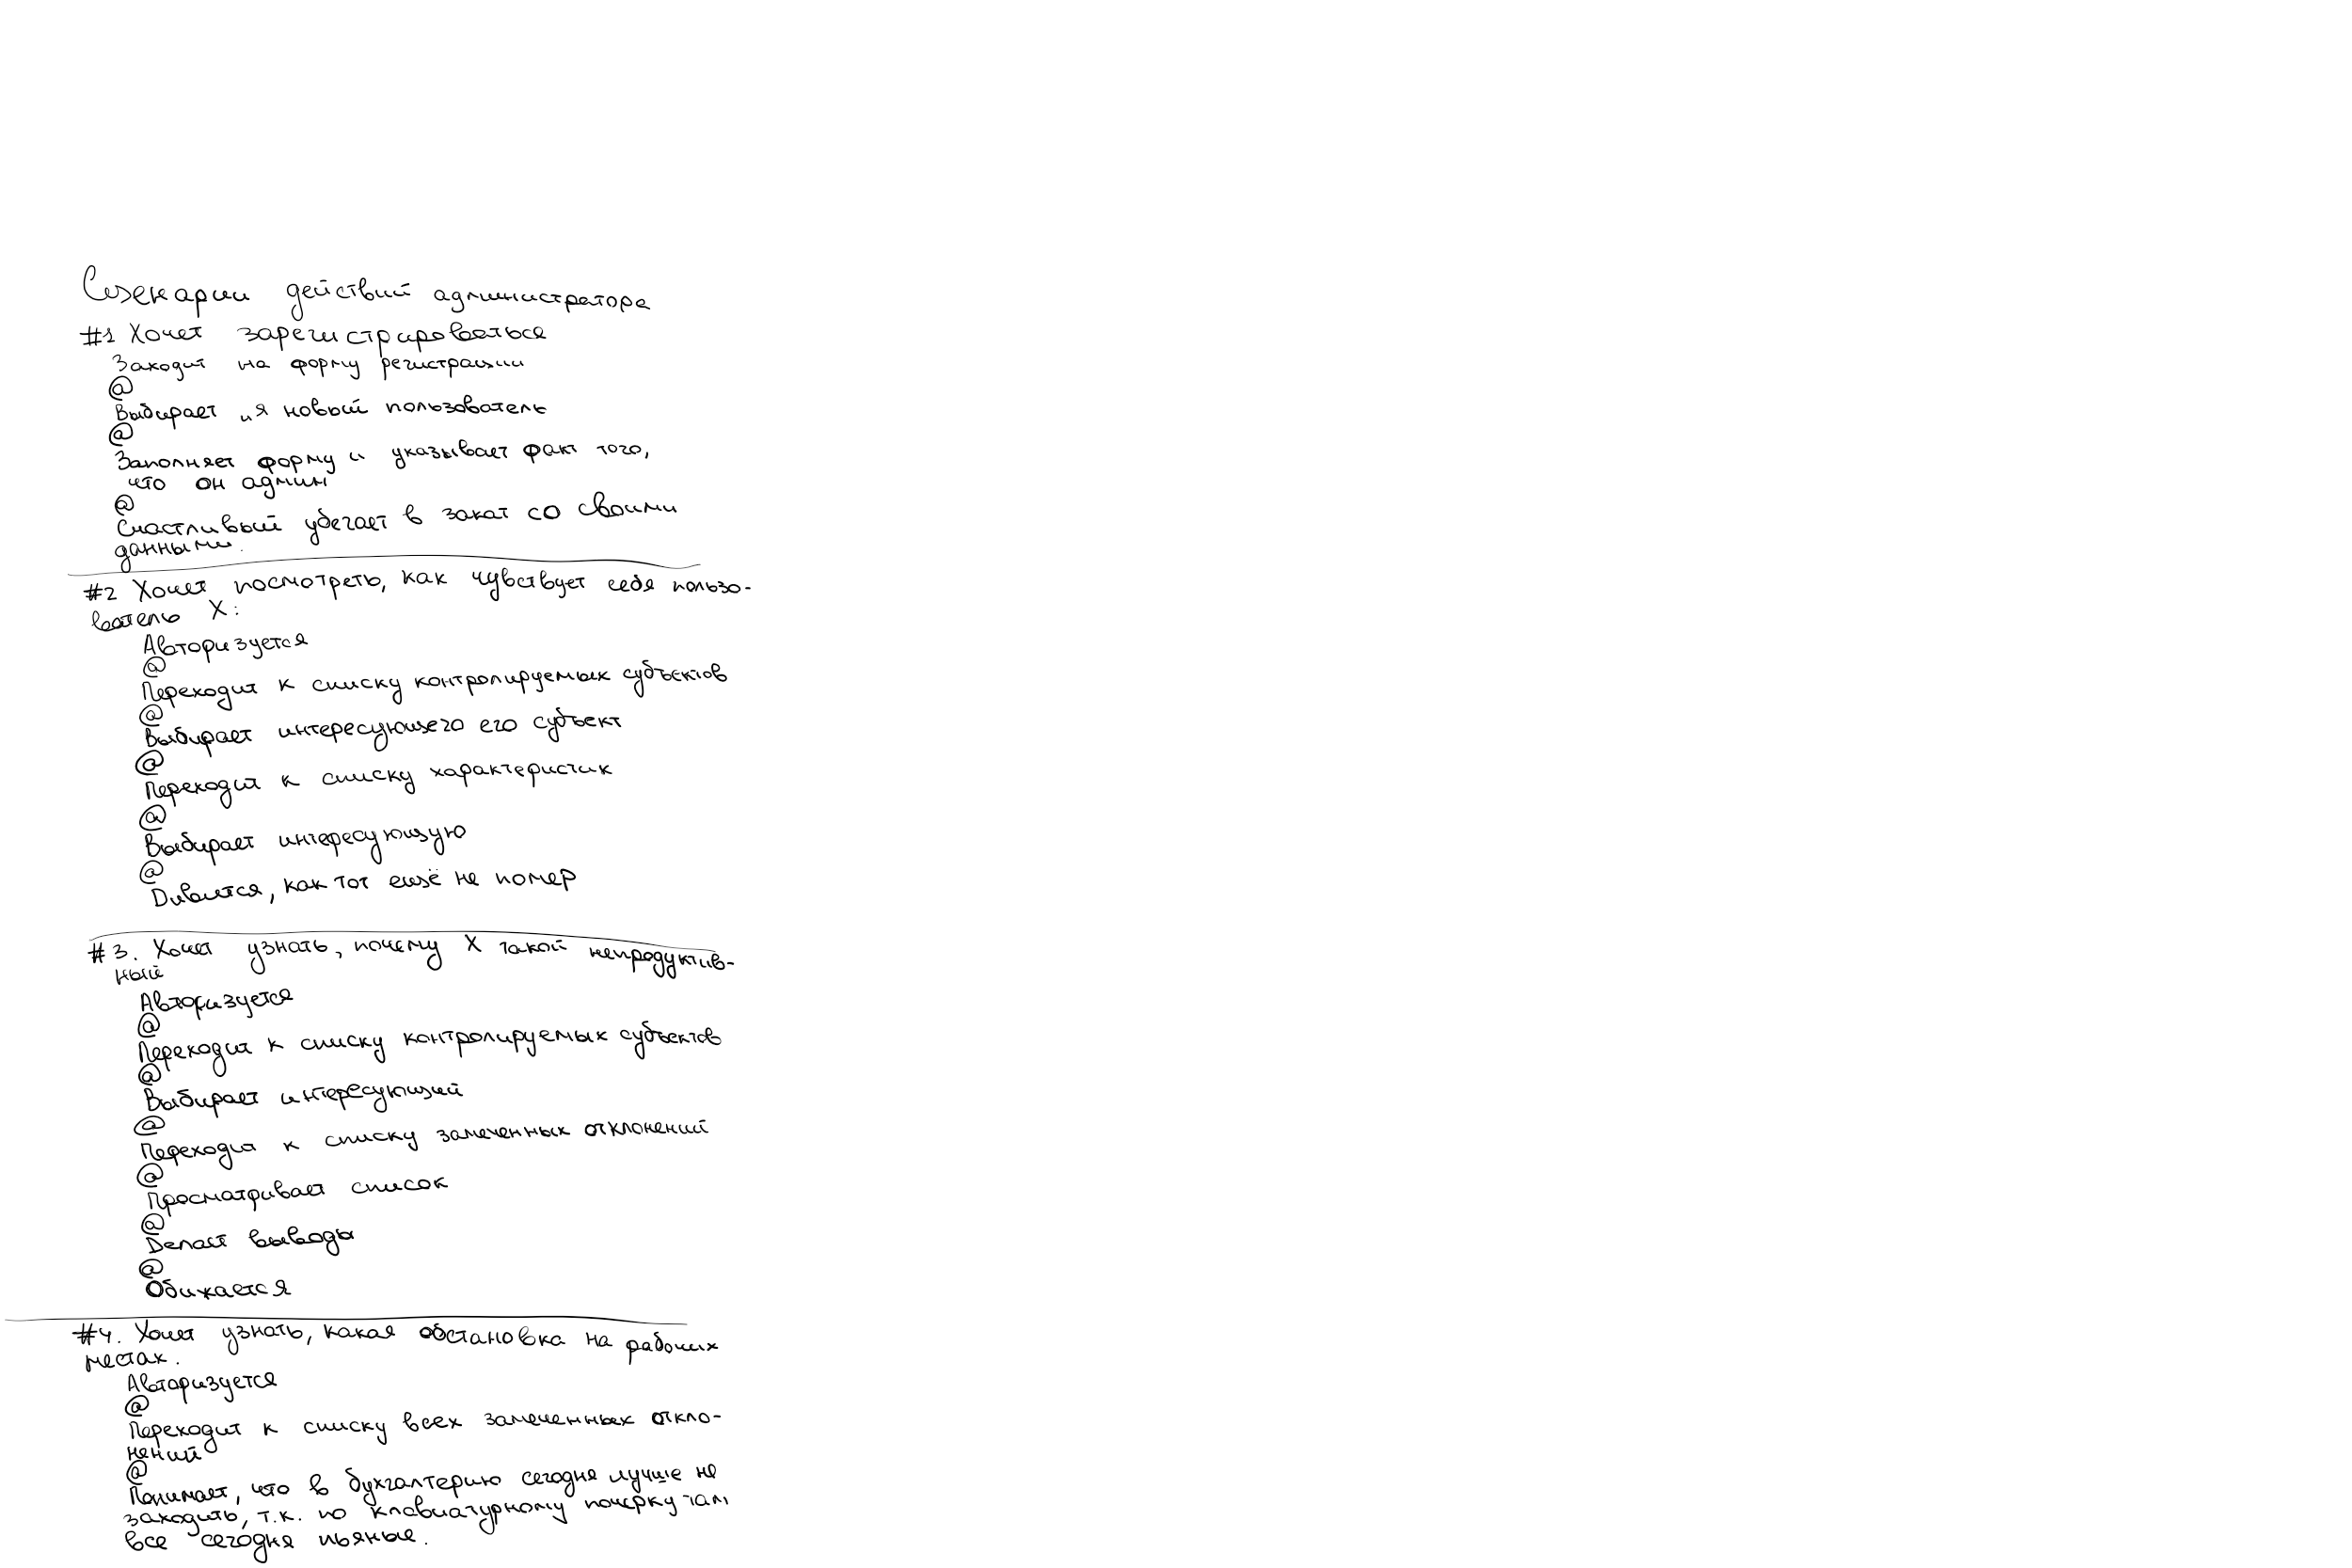 Сценарии действий администратора
#1 Хочет зарегистрироваться
Заходит на форму регистрации
@
Выбирает "я новый пользователь
@
Заполняет форму и указывает факт того,
что он админ
@
Счастливый убегает в закат со своими
данными.
#2 Хочет посмотреть, как чувствует себя пользо-
ватель X:
Авторизуется
@
Переходит к списку контролируемых субъектов
@
Выбирает интересующего его субъект
@
Переходит к списку характеристик
@
Выбирает интересующую
@
Дивится, как тот ещё не помер
#3. Хочет узнать, почему X такой непродуктив-
ный
Авторизуется
@
Переходит к списку контролируемых субъектов
@
Выбирает интересующий
@
Переходит к списку замеченных отклонений
@
Просматривает список
@
Делает выводы
@
Обижается
#4. Хочет узнать, какая обстановка на рабочих
местах.
Авторизуется
@
Переходит к списку всех замеченных откло-
нений
@
Понимает, что в бухгалтерию сегодня лучше не
заходить, т.к. по клавиатурному почерку там
все сегодня пьяные.